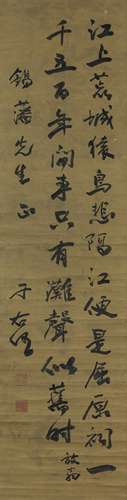 江上荒城猿鳥悲隔江便是屈原祠一
千五百年間事只有灘聲似舊時 放翁
錫藩先生正 于右任